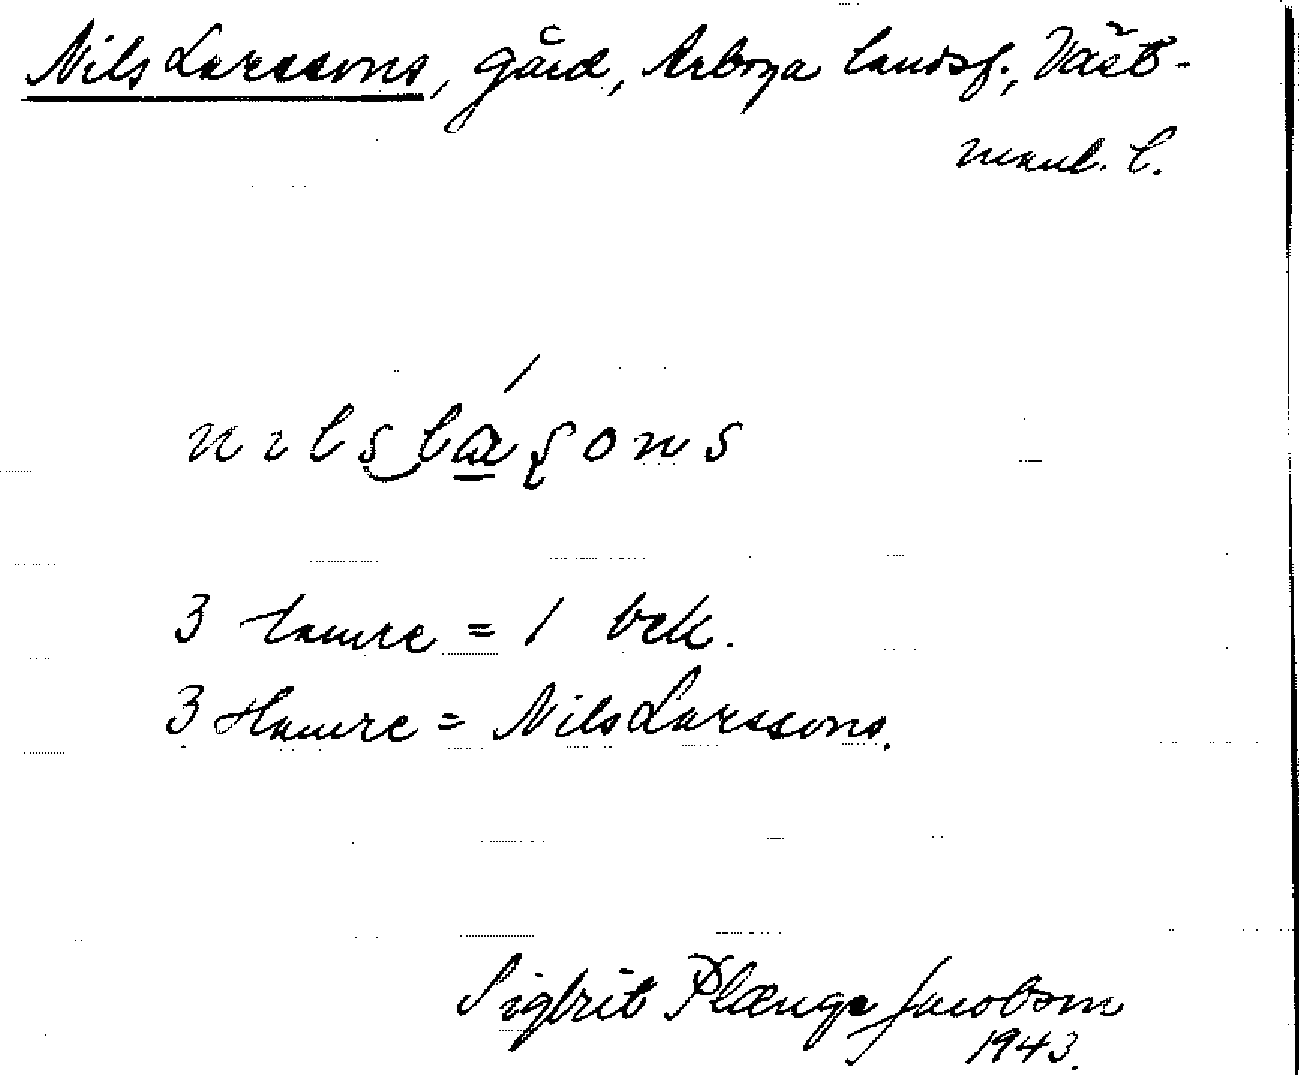 Nils Larssons, gård, Arboga landsf., Väst-
manl. l.
nilsláʂons
3 tunnre = 1 bek.
3 Hamre = Nils Larssons.
Sigbrit Plænge Jacobson
1943.